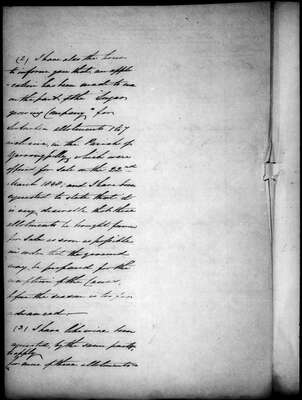 (2) I have also the honor
to inform you that, an appli
cation has been made to me
on the part of the "Sugar
growing Company" for
Suburban allotments 1 to 7
inclusive, in the Parish of
which were
offered for sale on the 22nd
March 18 and I have been
requested to state that it
is very desirable that these
allotments be brought forward
for sale as soon as possible
in order that the ground
may be prepared for the
reception of the Canes,
before the season is too far
advanced.
(3) I have likewise been
requested, by the same party,
to apply
for one of these allotments